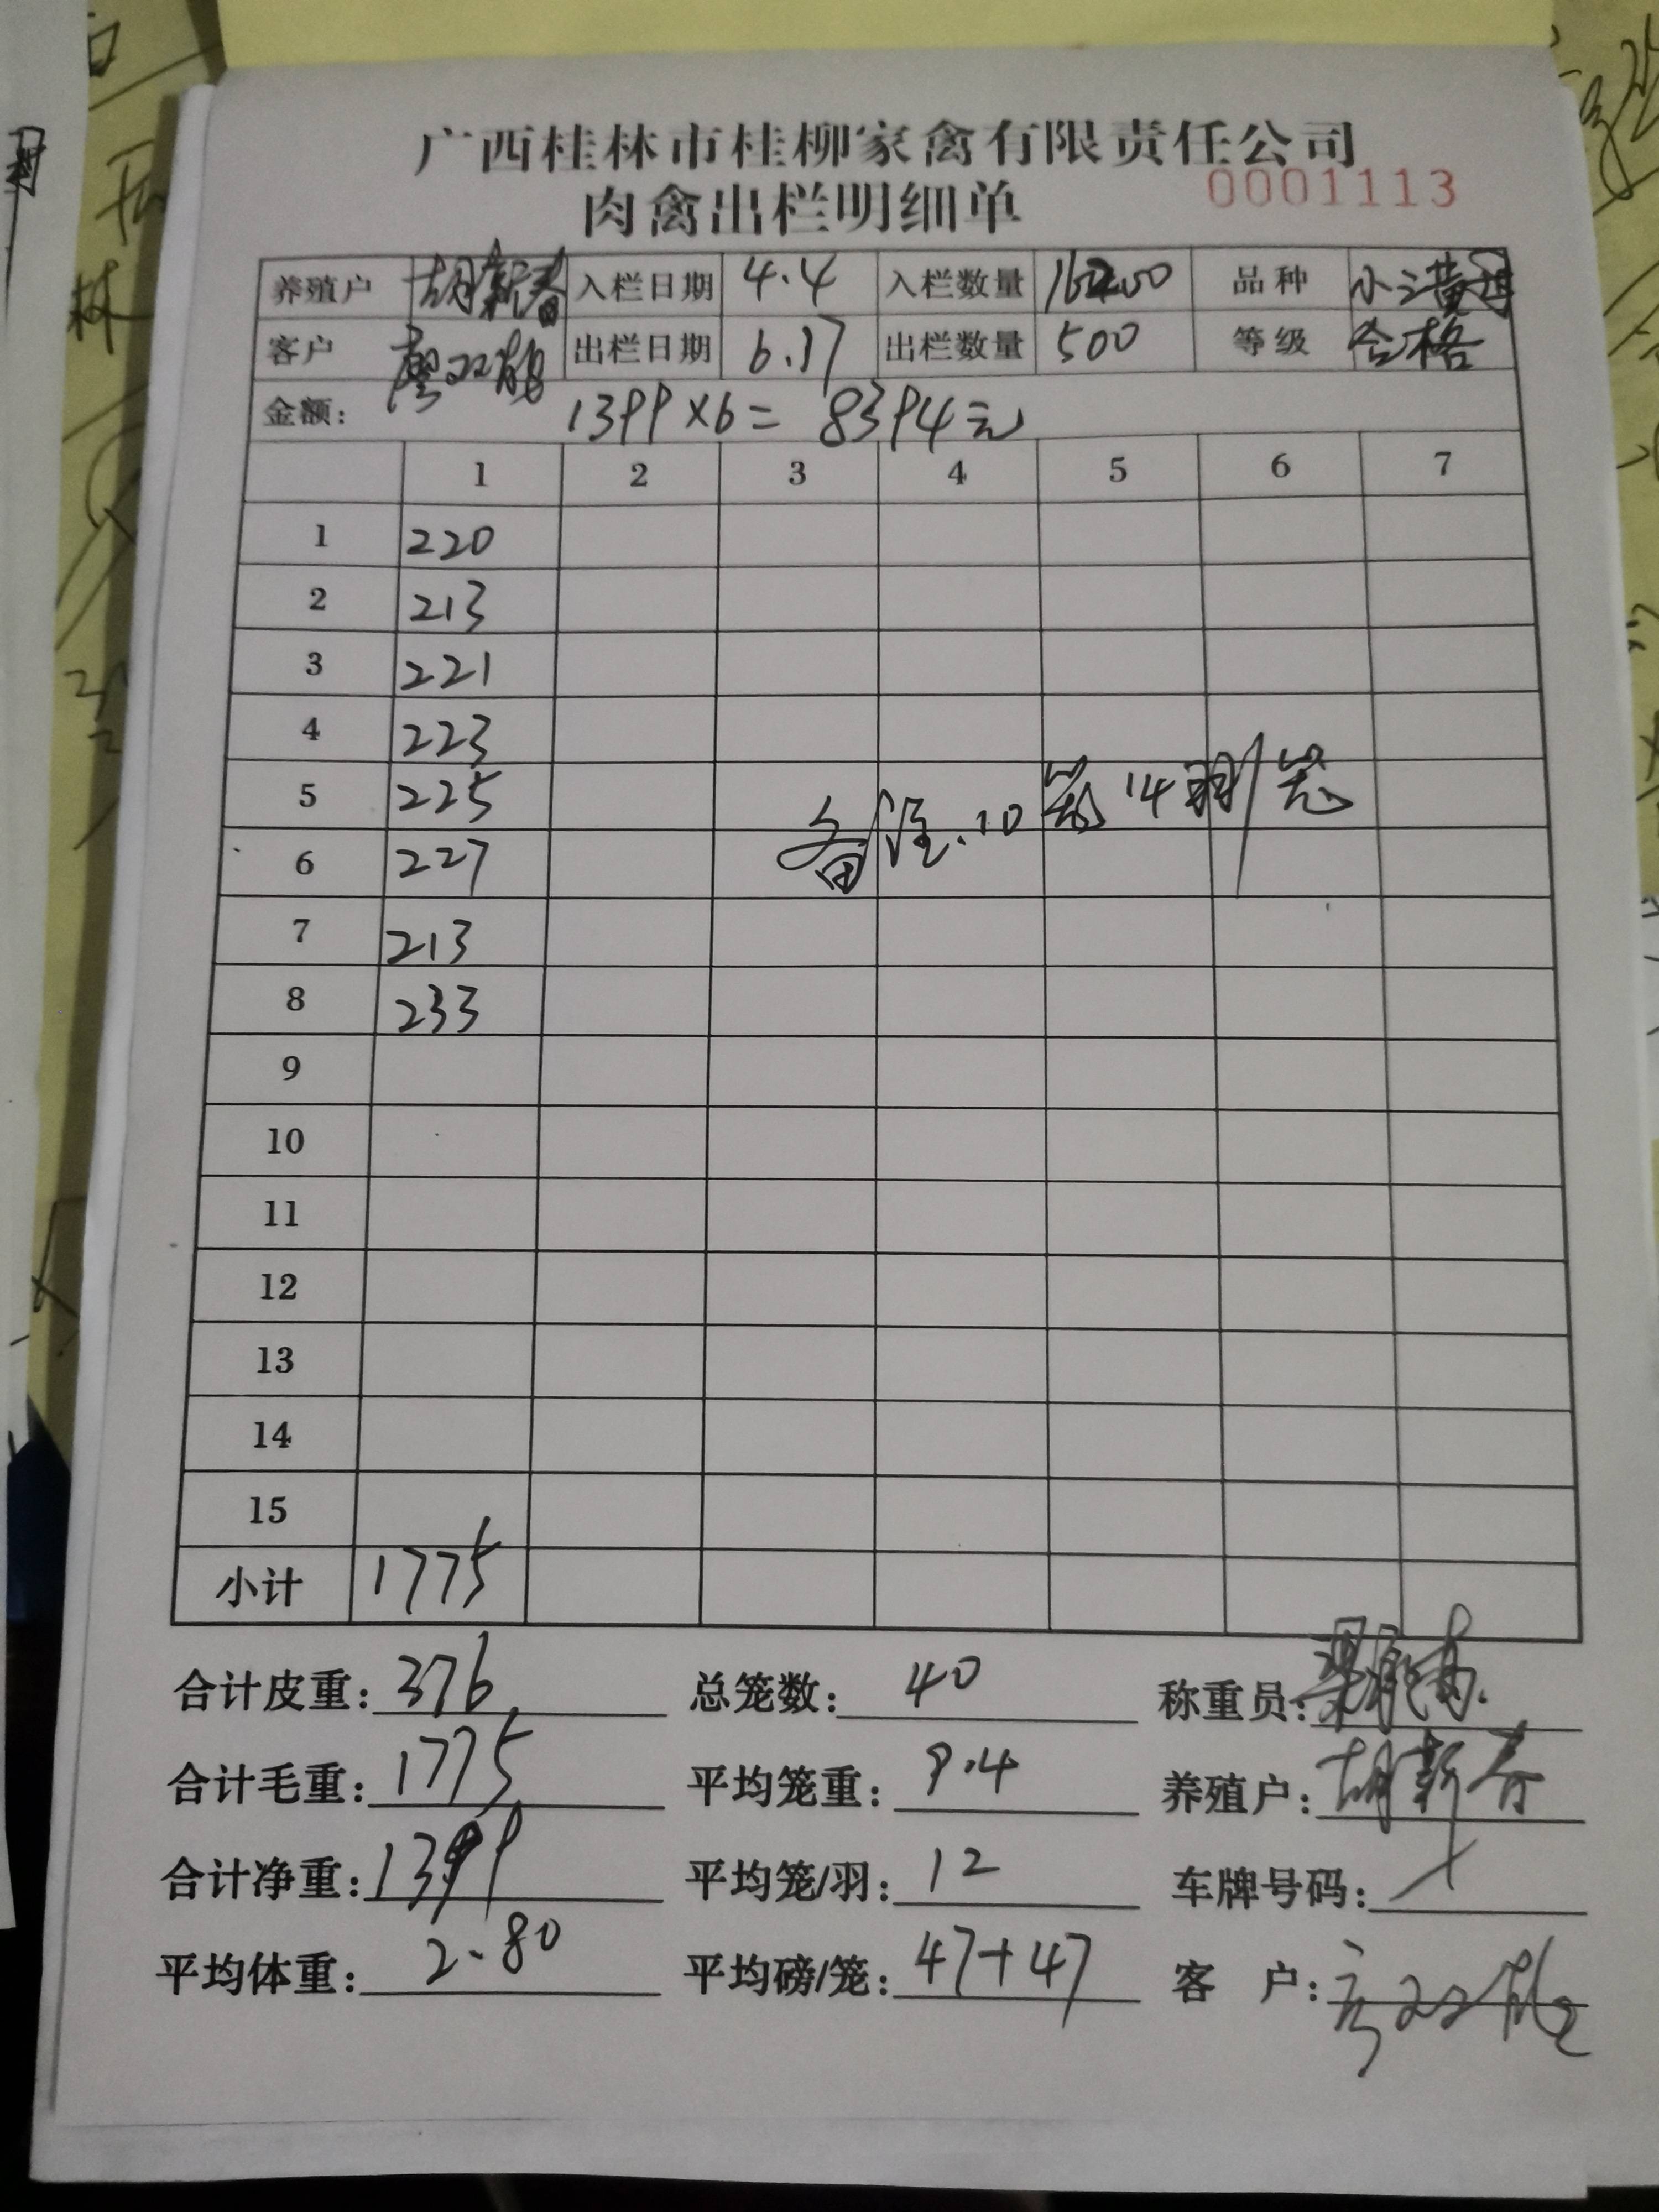 广西桂林市桂柳家禽有限责任公司
肉禽出栏明细单 0001113
养殖户 胡新春 入栏日期 4.4 入栏数量 品种 小三黄
客户 廖双 出栏日期 6.17 出栏数量 500 等级 合格
金额: 1399×6= 8394元
1 2 3 4 5 6 7
1 220
2 213
3 221
4 223
5 225
6 227
备注.10笼14羽/笼
7 213
8 233
9
10
11
12
13
14
15
小计 1775
合计皮重: 376 总笼数: 40 称重员:
合计毛重: 1775 平均笼重: 9.4 养殖户: 胡新春
合计净重: 1399 平均笼/羽: 12 车牌号码:
平均体重: 2.80 平均磅/笼: 47+47 客户: